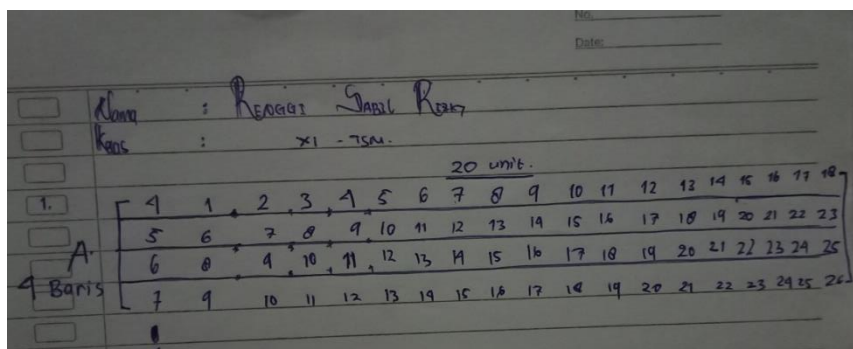 No.
Date:
Nama : Sabil Rizky
Kelas : XI - TSM.
20 unit.
1. 4 1 2 3 4 5 6 7 8 9 10 11 12 13 14 15 16 17 18
A. 5 6 7 8 9 10 11 12 13 14 15 16 17 18 19 20 21 22 23
6 8 9 10 11 12 13 14 15 16 17 18 19 20 21 22 23 24 25
4 Baris 7 9 10 11 12 13 14 15 16 17 18 19 20 21 22 23 24 25 26